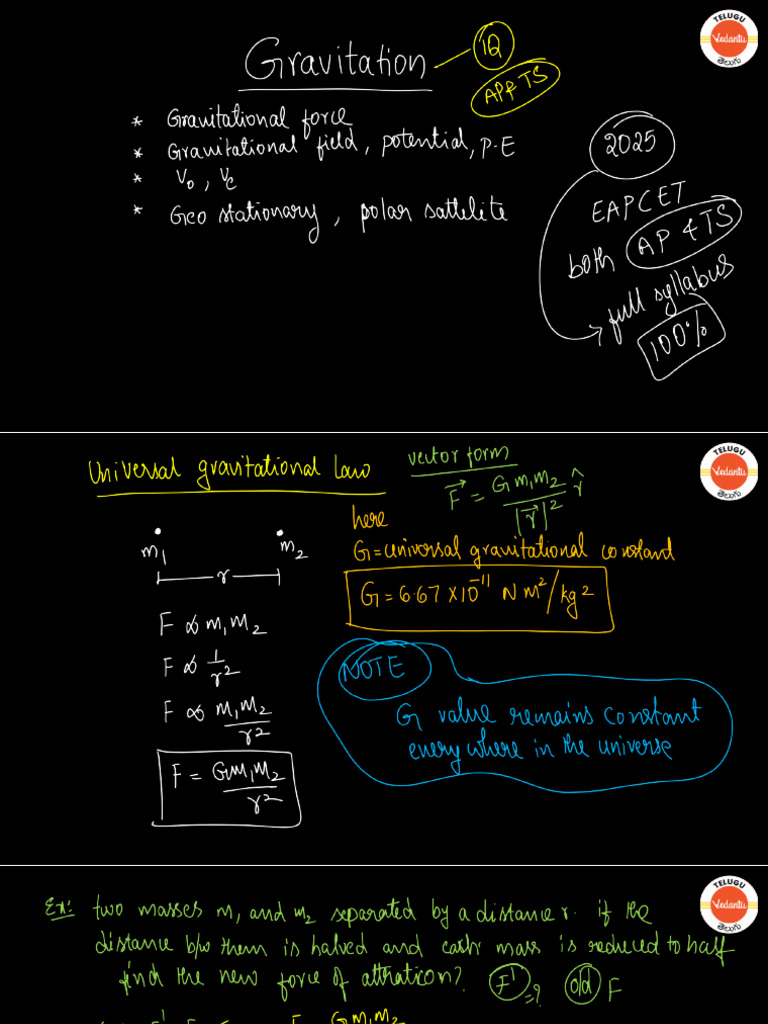 Gravitation
1Q
AP & TS
TELUGU
Vedantu
తెలుగు
* Gravitational force
* Gravitational field, potential, P.E
* V₀, Vₑ
* Geo stationary, polar sattelite
2025
EAPCET
both AP & TS
full syllabus
100%
Universal gravitational Law
vector form
F⃗ = G m₁m₂ / |r⃗|² r̂
TELUGU
Vedantu
తెలుగు
m₁ m₂
r
here
G = universal gravitational constant
G = 6.67 × 10⁻¹¹ N m²/kg²
F ∝ m₁m₂
F ∝ 1/r²
F ∝ m₁m₂/r²
F = Gm₁m₂/r²
NOTE
G value remains constant
every where in the universe
TELUGU
Vedantu
తెలుగు
Ex: two masses m₁ and m₂ separated by a distance r. if the
distance b/w them is halved and each mass is reduced to half
find the new force of attraction? F' =? old F